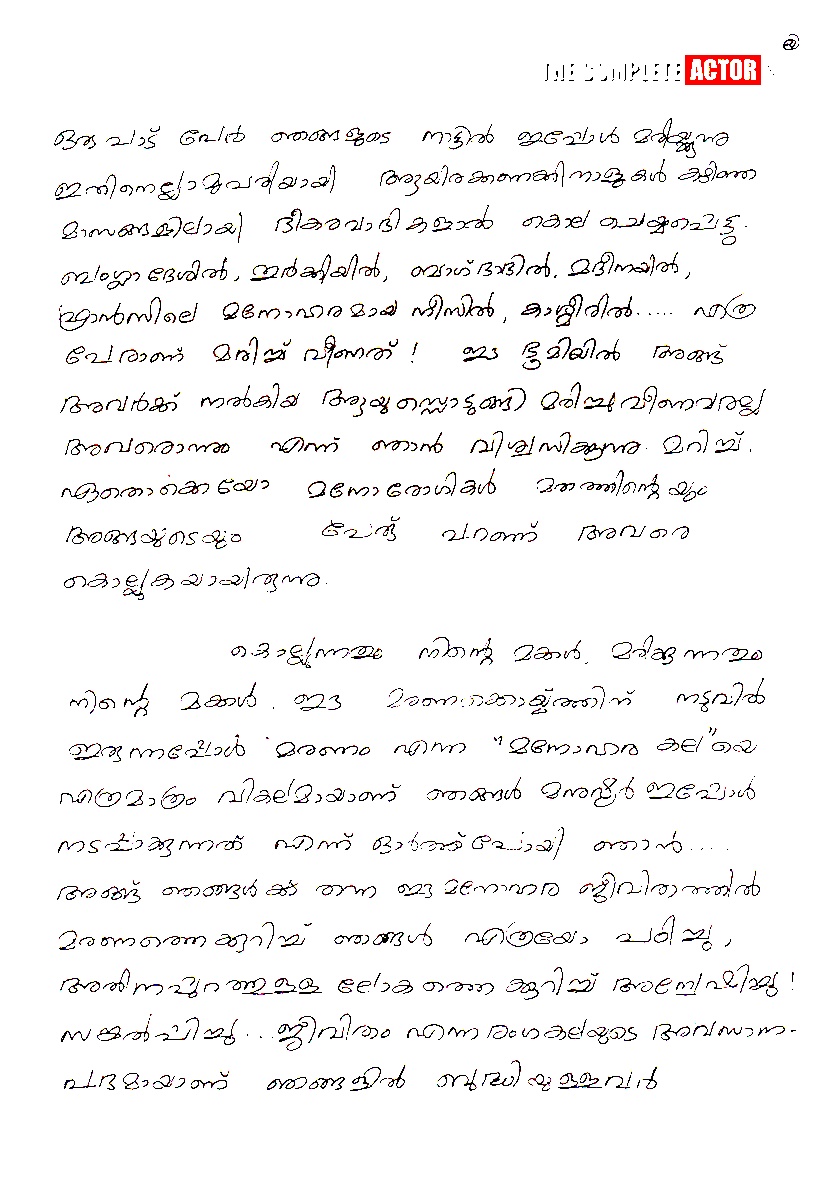 THE COMPLETE ACTOR
ഒരുപാട് പേർ ഞങ്ങളുടെ നാട്ടിൽ ഇപ്പോൾ മരിയ്ക്കുന്നു
ഇതിനെല്ലാമുപരിയായി ആയിരക്കണക്കിനാളുകൾ കഴിഞ്ഞ
മാസങ്ങളിലായി ഭീകരവാദികളാൽ കൊല ചെയ്യപ്പെട്ടു.
ബംഗ്ലാദേശിൽ, ഇർക്കിയിൽ, ബാഗ്ദാദിൽ, മദീനയിൽ,
ഫ്രാൻസിലെ മനോഹരമായ നീസിൽ, കാശ്മീരിൽ..... എത്ര
പേരാണ് മരിച്ച് വീണത് ! ഈ ഭൂമിയിൽ അങ്ങ്
അവർക്ക് നൽകിയ ആയുസ്സൊടുങ്ങി മരിച്ചുവീണവരല്ല
അവരൊന്നും എന്ന് ഞാൻ വിശ്വസിക്കുന്നു. മറിച്ച്.
ഏതൊക്കെയോ മനോരോഗികൾ മതത്തിന്റെയും
അങ്ങയുടെയും പേര് പറഞ്ഞ് അവരെ
കൊല്ലുകയായിരുന്നു.
കൊല്ലുന്നതും നിന്റെ മക്കൾ. മരിക്കുന്നതും
നിന്റെ മക്കൾ. ഈ മരണക്കൊയ്ത്തിന് നടുവിൽ
ഇരുന്നപ്പോൾ മരണം എന്ന "മനോഹര കല"യെ
എത്രമാത്രം വികലമായാണ് ഞങ്ങൾ മനുഷ്യർ ഇപ്പോൾ
നടപ്പാക്കുന്നത് എന്ന് ഓർത്തുപോയി ഞാൻ.....
അങ്ങ് ഞങ്ങൾക്കു തന്ന ഈ മനോഹര ജീവിതത്തിൽ
മരണത്തെക്കുറിച്ച് ഞങ്ങൾ എത്രയോ പഠിച്ചു,
അതിനപ്പുറത്തുള്ള ലോകത്തെക്കുറിച്ച് അന്വേഷിച്ചു !
സങ്കൽപിച്ചു... ജീവിതം എന്ന രംഗകലയുടെ അവസാന-
പദമായാണ് ഞങ്ങളിൽ ബുദ്ധിയുള്ളവർ